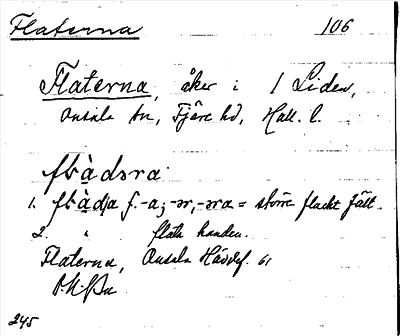 Flaterna 106
Flaterna, åker i 1 Liden,
Onsala sn, Fjäre hd, Hall. l.
1. f. -a; -ər, -əra = större flackt fält.
2. " flata handen.
Flaterna, Onsala Hävdef. 61
245